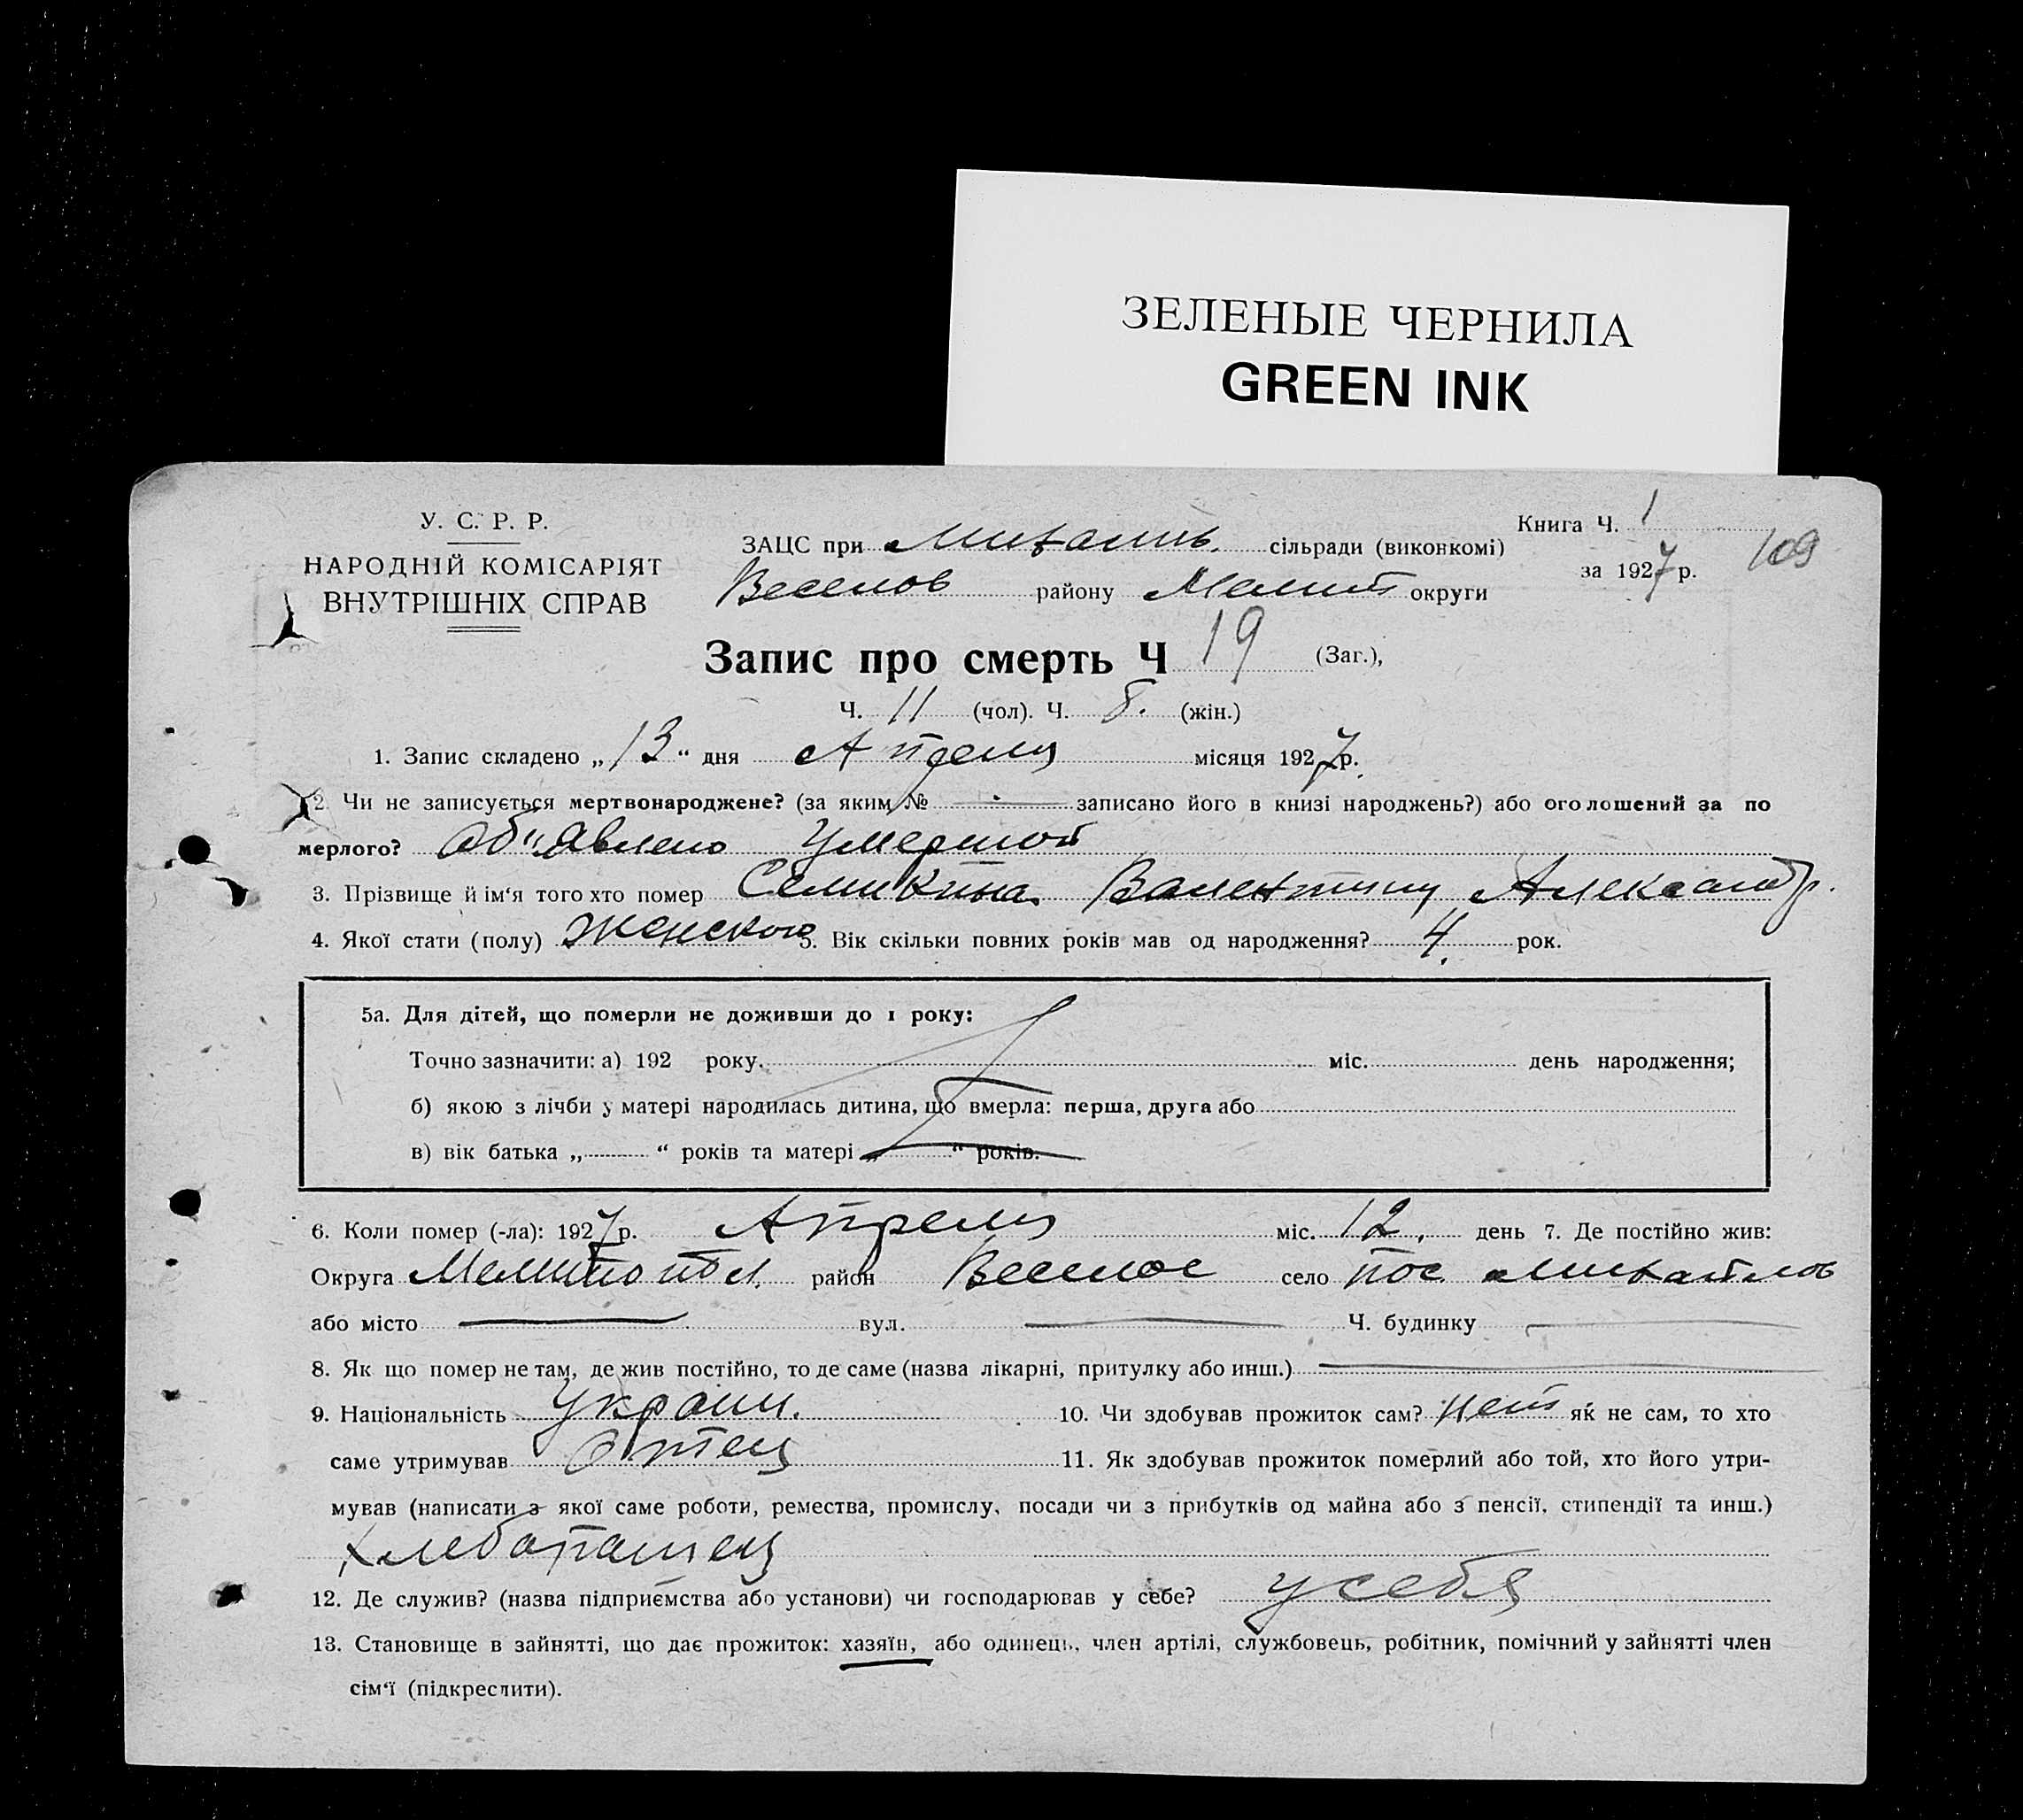 ЗЕЛЕНЫЕ ЧЕРНИЛА
GREEN INK
У. С. Р. Р.
НАРОДНІЙ КОМІСАРІЯТ
ВНУТРІШНІХ СПРАВ
Книга Ч. 1
за 1927 р. 109
ЗАЦС при Михайль. сільради (виконкомі)
Веселов району Мелит округи
Запис про смерть Ч 19 (Заг.),
Ч. 11 (чол). Ч. 8. (жін.)
1. Запис складено „13“ дня Апреля місяця 1927 р.
2. Чи не записується мертвонароджене? (за яким № — записано його в книзі народжень?) або оголошений за по
мерлого? Об"явлено Умершой
3. Прізвище й ім‘я того хто помер Семикина Валентину Александр.
4. Якої стати (полу) Женского 5. Вік скільки повних років мав од народження? 4. рок.
5а. Для дітей, що померли не доживши до 1 року:
Точно зазначити: а) 192 року. міс. день народження;
б) якою з лічби у матері народилась дитина, що вмерла: перша, друга або
в) вік батька „ “ років та матері „ “ років.
6. Коли помер (-ла): 1927 р. Апреля міс. 12. день 7. Де постійно жив:
Округа Мелитопол. район Веселое село пос Михайлов
або місто — вул. — Ч. будинку —
8. Як що помер не там, де жив постійно, то де саме (назва лікарні, притулку або инш.) —
9. Національність Украин. 10. Чи здобував прожиток сам? нет як не сам, то хто
саме утримував Отец 11. Як здобував прожиток померлий або той, хто його утри-
мував (написати з якої саме роботи, ремества, промислу, посади чи з прибутків од майна або з пенсії, стипендії та инш.)
хлебопашец
12. Де служив? (назва підприємства або установи) чи господарював у себе? у себя
13. Становище в зайнятті, що дає прожиток: хазяїн, або одинець, член артілі, службовець, робітник, помічний у зайнятті член
сім‘ї (підкреслити).